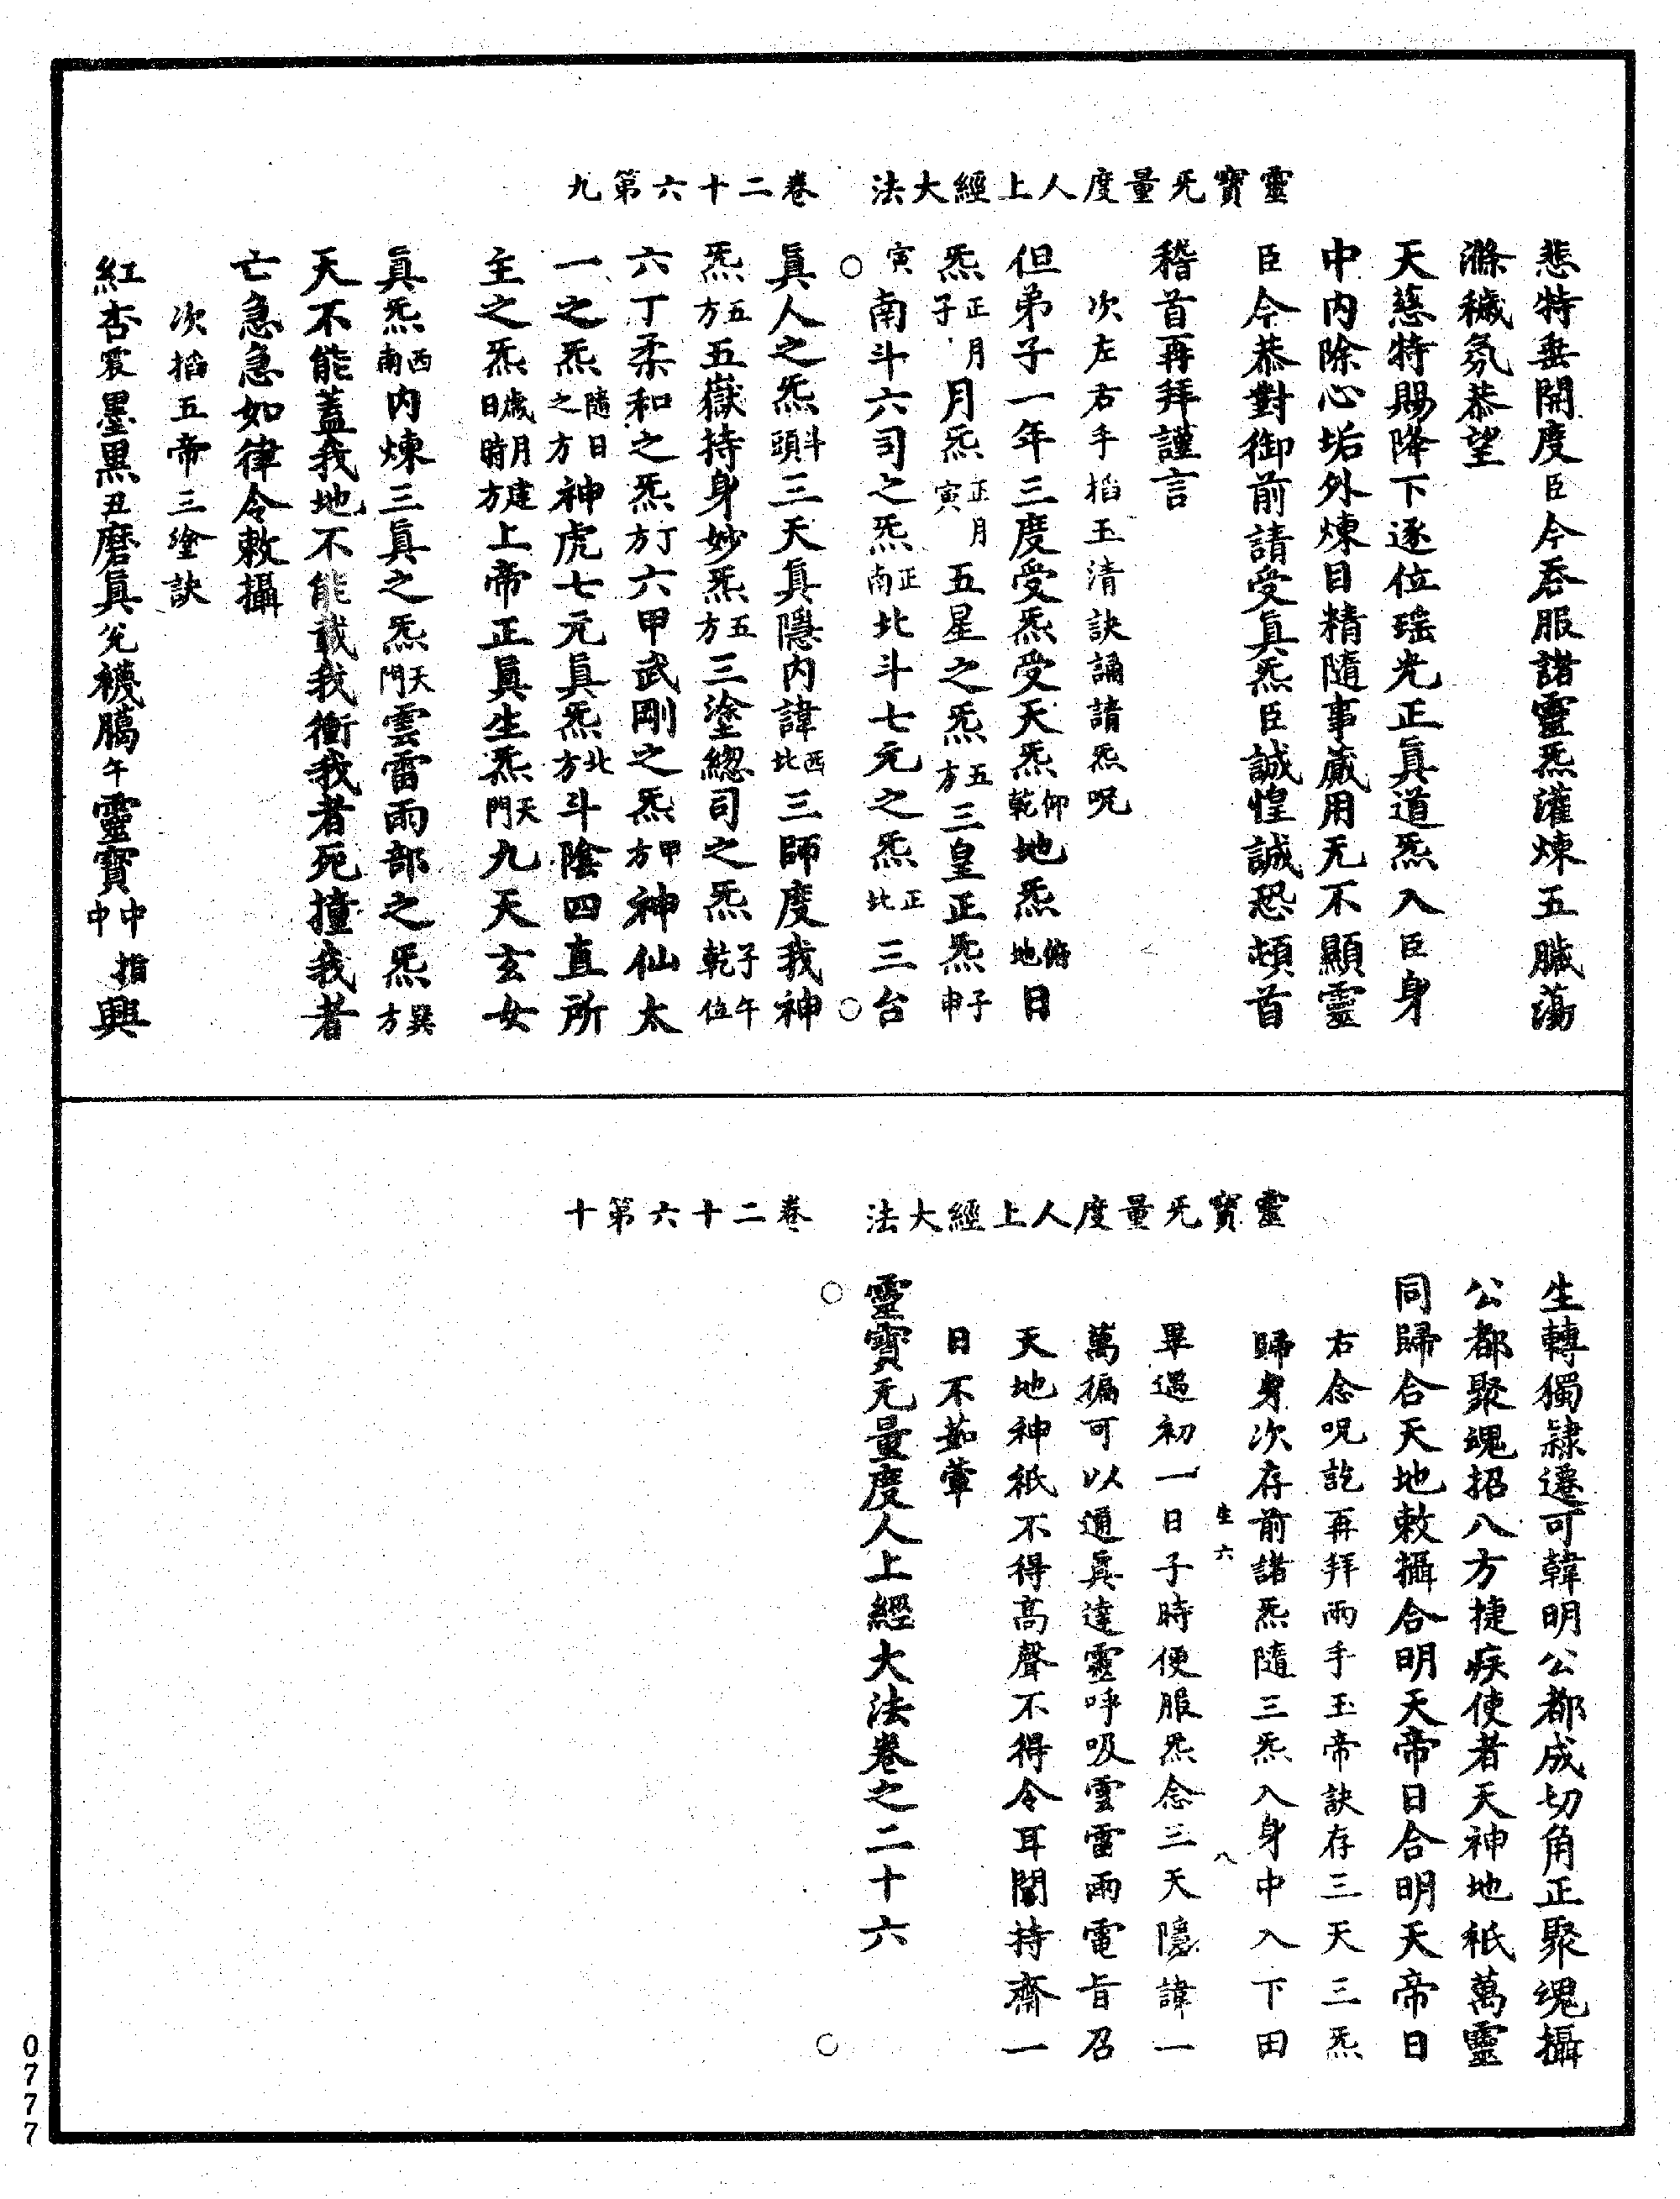 靈寶无量度人上經大法　卷二十六第九
悲特垂開度臣今吞服諸靈炁灌煉五臟蕩
滌穢氛恭望
天慈特賜降下逐位瑤光正真道炁入臣身
中內除心垢外煉目精隨事蕆用无不顯靈
臣今恭對御前請受真炁臣誠惶誠恐頓首
稽首再拜謹言
次左右手搯玉清訣誦請炁呪
但弟子一年三度受炁受天炁仰乾地炁俯地日
炁正月子月炁正月寅五星之炁五方三皇正炁子申
寅南斗六司之炁正南北斗七元之炁正北三台
真人之炁斗頭三天真隱內諱西北三師度我神
炁五方五嶽持身妙炁五方三塗緫司之炁子午乾位
六丁柔和之炁丁方六甲武剛之炁甲方神仙太
一之炁隨日之方神虎七元真炁北方斗陰四直所
主之炁歲月建日時方上帝正真生炁天門九天玄女
真炁西南內煉三真之炁天門雲雷雨部之炁巽方
天不能蓋我地不能載我衝我者死撞我者
亡急急如律令敕攝
次搯五帝三塗訣
紅杏震墨黑丑磨真兊襪臈午靈寶中中指興
靈寶无量度人上經大法　卷二十六第十
生轉獨隸遷可韓明公都成切角正聚魂攝
公都聚魂招八方捷疾使者天神地祇萬靈
同歸合天地敕攝合明天帝日合明天帝日
右念呪訖再拜兩手玉帝訣存三天三炁
歸身次存前諸炁隨三炁入身中入下田
生六　八
畢遇初一日子時便服炁念三天隱諱一
萬徧可以通真達靈呼吸雲雷雨電旨召
天地神祇不得高聲不得令耳聞持齋一
日不茹葷
靈寶无量度人上經大法卷之二十六
0777